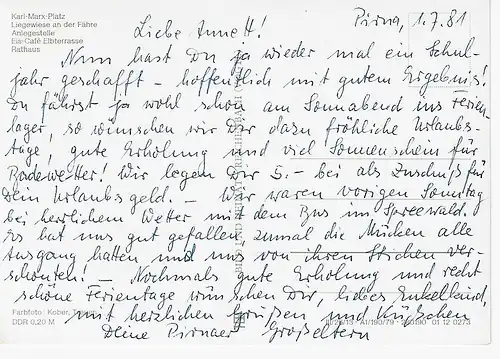 Karl-Marx-Platz
Liegewiese an der Fähre
Anlegestelle
Eis-Café Elbterrasse
Rathaus
Pirna, 1.7.81
Liebe Annett!
Nun hast Du ja wieder mal ein Schul-
jahr geschafft – hoffentlich mit gutem Ergebnis!
Du fährst ja wohl schon am Sonnabend ins Ferien-
lager, so wünschen wir Dir dazu fröhliche Urlaubs-
tage, gute Erholung und viel Sonnenschein für
Badewetter! Wir legen Dir 5.- bei als Zuschuß für
Dein Urlaubsgeld. – Wir waren vorigen Sonntag
bei herrlichem Wetter mit dem Bus im Spreewald.
Es hat uns gut gefallen, zumal die Mücken alle
Ausgang hatten und uns von ihren Stichen ver-
schonten! – Nochmals gute Erholung und recht
schöne Ferientage wünschen Dir, liebes Enkelkind,
mit herzlichen Grüßen und Küßchen
Deine Pirnaer Großeltern
Farbfoto: Kober,
DDR 0,20 M
A1/190/79 01 12 0273